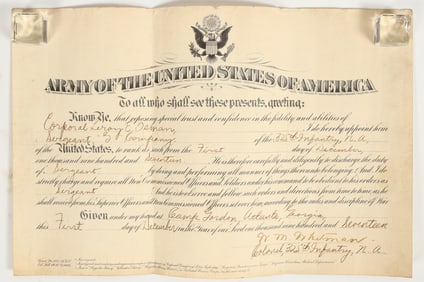 ARMY OF THE UNITED STATES OF AMERICA
To all who shall see these presents, greeting:
Know Ye, that reposing special trust and confidence in the fidelity and abilities of
Corporal Leroy C. I do hereby appoint him
Sergeant, Company of the 325th Infantry, N.A.
of the United States, to rank as such from the First day of December
one thousand nine hundred and seventeen. He is therefore carefully and diligently to discharge the duty
of Sergeant by doing and performing all manner of things thereunto belonging. And I do
strictly charge and require all Non-Commissioned Officers and Soldiers under his command to be obedient to his orders as
Sergeant And he is to observe and follow such orders and directions from time to time, as he
shall receive from his Superior Officers and Non-Commissioned Officers set over him, according to the rules and discipline of War.
Given under my hand at Camp Gordon, Atlanta, Georgia
this First day of December in the year of our Lord one thousand nine hundred and Seventeen
W. M. Whitman
Colonel, 325th Infantry, N.A.